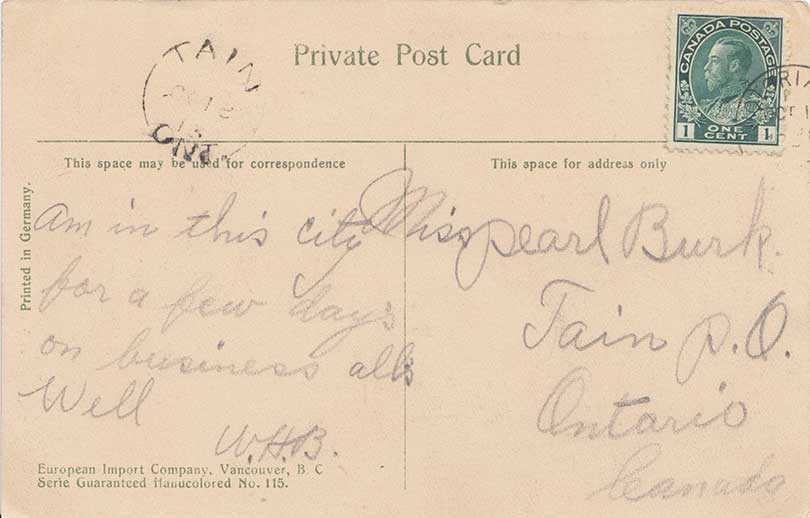 Private Post Card
TAIN
OC 13
ONT
CANADA POSTAGE
1 ONE CENT 1
RIA
This space may be used for correspondence
This space for address only
Printed in Germany.
am in this city
for a few days
on business alls
Well
W.H.B.
Miss pearl Burk.
Tain P.O.
Ontario
Canada
European Import Company, Vancouver, B C
Serie Guaranteed Handcolored No. 115.